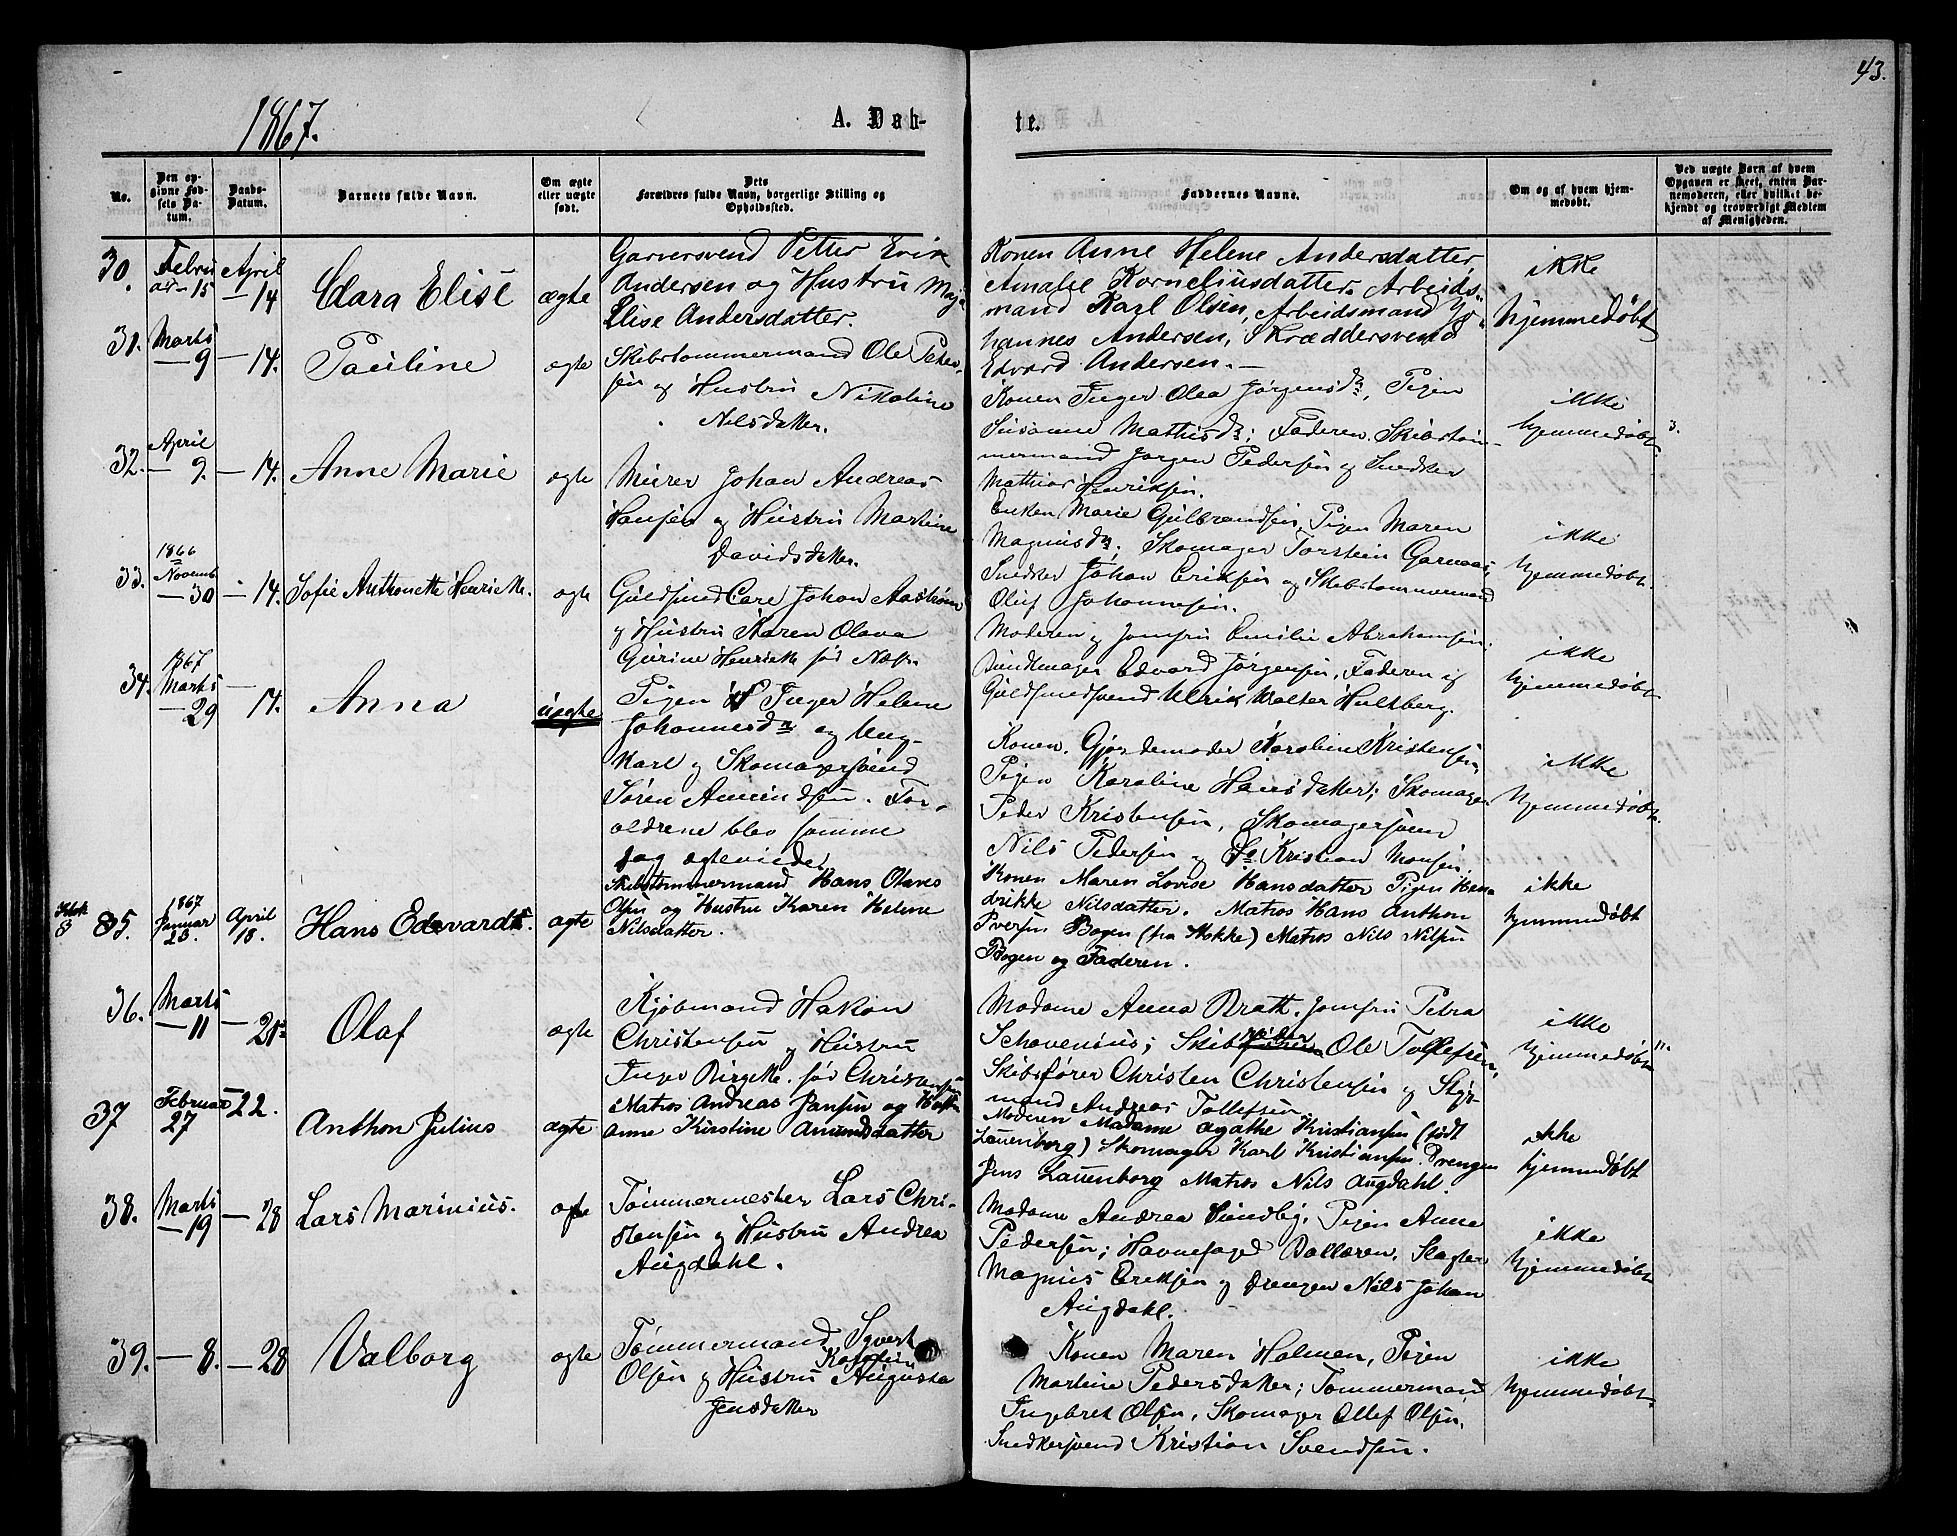 43.
1867.
A. Dab-
te.
No.
Den opgivne Fødsels Datum.
Daabs-Datum.
Barnets fulde Navn.
Om ægte eller uægte født.
Dets Forældres fulde Navn, borgerlige Stilling og Opholdssted.
Faddernes Navne.
Om og af hvem hjemmedøbt.
Ved uægte Børn af hvem Opgaven er skeet, enten Barnemoderen, eller hvilket bekjendt og troværdigt Medlem af Menigheden.
30.
Febru
ar 15
April
— 14
Clara Elise
ægte
Garversvend Petter Erik
Andersen og Hustru Maja
Elise Andersdatter.
Konen Anne Helene Andersdatter,
Amalie Korneliusdatter. Arbeids-
mand Karl Olsen, Arbeidsmand Jo-
hannes Andersen, Skræddersvend
Edvard Andersen. —
ikke
hjemmedøbt
31.
Marts
— 9
— 14.
Pauline
ægte
Skibstømmermand Ole Peter-
sen og Hustru Nikoline
Nilsdatter.
Konen Inger Olea Jørgensdr, Pigen
Susanne Mathisdr; Faderen, Skibstøm-
mermand Jørgen Pedersen og Snedker
Mathias Henriksen.
ikke
hjemmedøbt
3.
32.
April
— 9.
— 14.
Anne Marie
ægte
Murer Johan Andreas
Hansen og Hustru Martine
Davidsdatter.
Enken Marie Gulbrandsen, Pigen Maren
Magnusdr; Skomager Torstein Garnaas,
Snedker Johan Eriksen og Skibstømmermand
Oluf Johannesen.
ikke
hjemmedøbt
33.
1866
Novemb
— 30
— 14.
Sofie Anthonette Henriette.
ægte
Guldsmed Carl Johan Aastrøm
og Hustru Karen Olava
Gurine Henriette fød Næss.
Moderen og Jomfru Emilie Abrahamsen.
Buntmager Edvard Jørgensen, Faderen og
Guldsmedsvend Ulrik Walter Hultberg.
ikke
hjemmedøbt
34.
1867
Marts
— 29
—
14.
Anna
uægte
Pigen Inger Helene
Johannesdr og Ung-
karl og Skomagersvend
Søren Amundsen. For-
ældrene blev samme
Dag ægteviede.
Konen, Gjordemoder Karoline Kristensen,
Pigen Karoline Hansdatter; Skomager
Peder Kristensen, Skomagersvend
Nils Pedersen og Do Kristian Monsen.
ikke
hjemmedøbt.
35.
1867
Januar
23.
April
18.
Hans Edevardt.
ægte
Skibstømmermand Hans Olaves
Olsen og Hustru Karen Helene
Nilsdatter.
Konen Maren Lovise Hansdatter Pigen Hen
drikke Nilsdatter. Matros Hans Anthon
Iversen Bogen (fra Stokke) Matros Nils Nilsen
Bogen og Faderen.
ikke
hjemmedøbt
36.
Marts
— 11
— 21
Olaf
ægte
Kjøbmand Hakon
Christensen og Hustru
Inger Birgitte fød Christensen
Madame Anna Bratt, Jomfru Petra
Schovenius; Skibsreder Ole Tollefsen,
Skibsfører Christen Christensen og Styr-
mand Andreas Tollefsen
ikke
hjemmedøbt
11.
37
Februar
27
22.
Anthon Julius
ægte
Matros Andreas Jansen og Hustru
Anne Kirstine Amundsdatter
Moderen Madame Agathe Kristiansen (født
Lauenborg) Skomager Karl Kristiansen. Drengen
Jens Lauenborg Matros Nils Augdahl.
ikke
hjemmedøbt
38.
Marts
— 19
— 28
Lars Marinius.
ægte
Tømmermester Lars Chri-
stensen og Hustru Andrea
Augdahl.
Madame Andrea Sundby, Pigen Anne
Pedersen; Havnefoged Dallæren, Slagter
Magnus Eriksen og Drengen Nils Johan
Augdahl.
ikke
hjemmedøbt
39.
— 8.
— 28
Valborg
ægte
Tømmermand Syvert
Olsen og Hustru Augusta
Jensdatter
Konen Maren Holmen, Pigen
Martine Pedersdatter; Tømmermand
Ingebret Olsen, Skomager Ollef Olsen,
Snedkersvend Kristian Svendsen.
ikke
hjemmedøbt